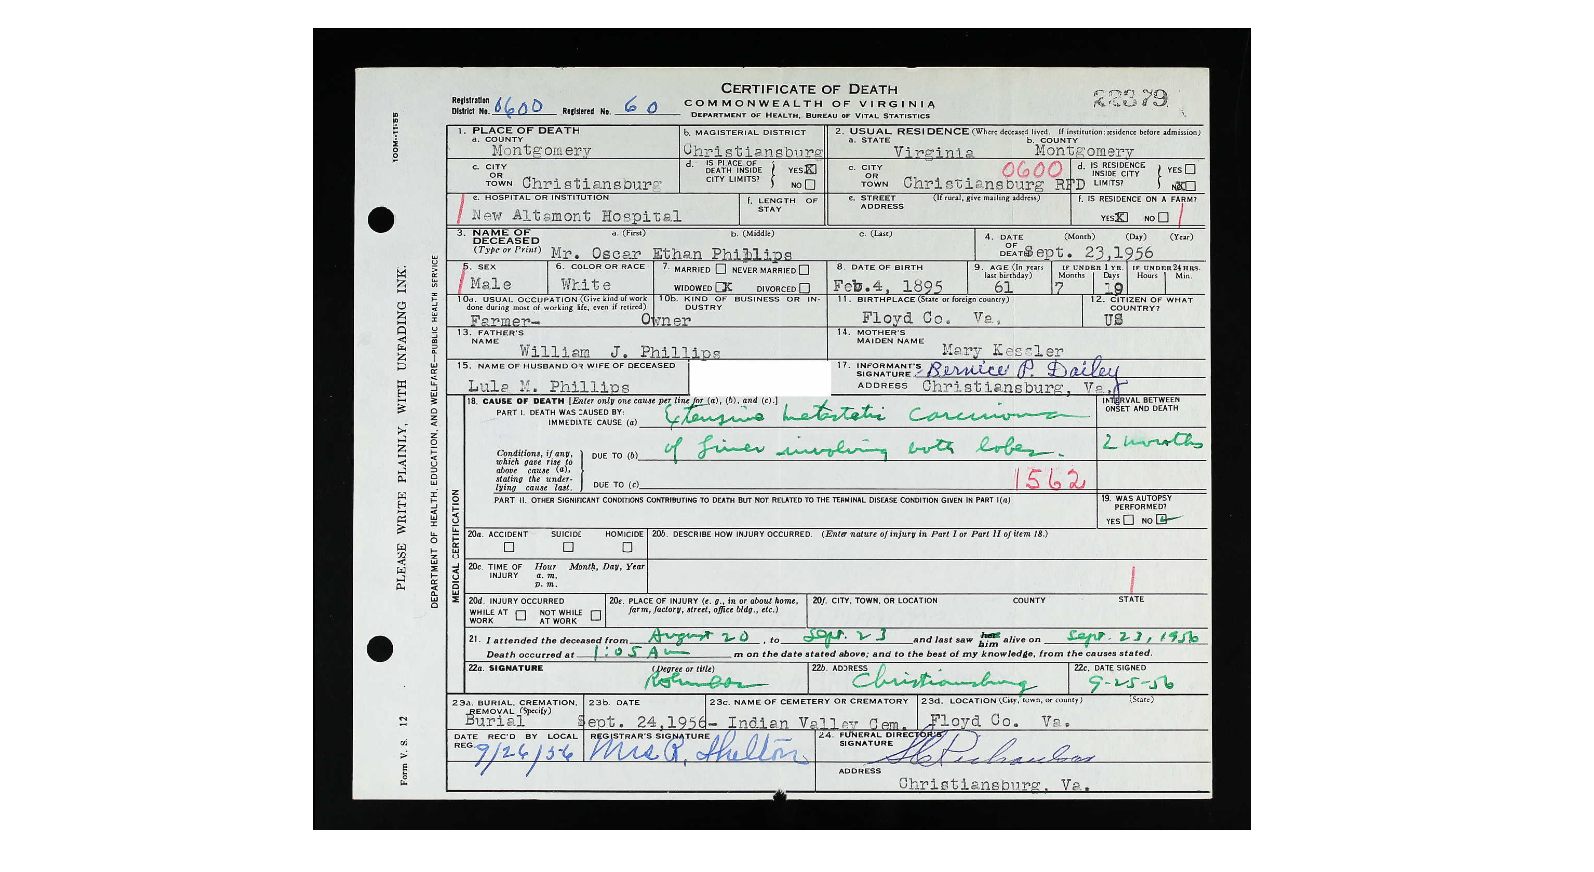 CERTIFICATE OF DEATH
COMMONWEALTH OF VIRGINIA
DEPARTMENT OF HEALTH, BUREAU OF VITAL STATISTICS
22379
Registration District No. 0600 Registered No. 60
100M--11-55
PLEASE WRITE PLAINLY, WITH UNFADING INK.
DEPARTMENT OF HEALTH, EDUCATION, AND WELFARE—PUBLIC HEALTH SERVICE
Form V. S. 12
1. PLACE OF DEATH
a. COUNTY
Montgomery
b. MAGISTERIAL DISTRICT
Christiansburg
2. USUAL RESIDENCE (Where deceased lived. If institution: residence before admission)
a. STATE
Virginia
b. COUNTY
Montgomery
c. CITY OR TOWN Christiansburg
d. IS PLACE OF DEATH INSIDE CITY LIMITS? YES X NO
c. CITY OR TOWN Christiansburg RFD
0600
d. IS RESIDENCE INSIDE CITY LIMITS? YES NO X
e. HOSPITAL OR INSTITUTION
New Altamont Hospital
f. LENGTH OF STAY
e. STREET ADDRESS (If rural, give mailing address)
f. IS RESIDENCE ON A FARM?
YES X NO
3. NAME OF DECEASED (Type or Print)
a. (First) b. (Middle) c. (Last)
Mr. Oscar Ethan Phillips
4. DATE OF DEATH (Month) (Day) (Year)
Sept. 23,1956
5. SEX
Male
6. COLOR OR RACE
White
7. MARRIED NEVER MARRIED
WIDOWED X DIVORCED
8. DATE OF BIRTH
Feb.4, 1895
9. AGE (In years last birthday)
61
IF UNDER 1 YR. Months Days
7 19
IF UNDER 24 HRS. Hours Min.
10a. USUAL OCCUPATION (Give kind of work done during most of working life, even if retired)
Farmer-
10b. KIND OF BUSINESS OR INDUSTRY
Owner
11. BIRTHPLACE (State or foreign country)
Floyd Co. Va,
12. CITIZEN OF WHAT COUNTRY?
US
13. FATHER'S NAME
William J. Phillips
14. MOTHER'S MAIDEN NAME
Mary Kessler
15. NAME OF HUSBAND OR WIFE OF DECEASED
Lula M. Phillips
17. INFORMANT'S SIGNATURE Bernice P. Dailey
ADDRESS Christiansburg, Va.
18. CAUSE OF DEATH [Enter only one cause per line for (a), (b), and (c).]
PART I. DEATH WAS CAUSED BY:
IMMEDIATE CAUSE (a) Extensive metastatic carcinoma
INTERVAL BETWEEN ONSET AND DEATH
Conditions, if any, which gave rise to above cause (a), stating the underlying cause last.
DUE TO (b) of liver involving both lobes.
2 months
DUE TO (c)
1562
PART II. OTHER SIGNIFICANT CONDITIONS CONTRIBUTING TO DEATH BUT NOT RELATED TO THE TERMINAL DISEASE CONDITION GIVEN IN PART I(a)
19. WAS AUTOPSY PERFORMED?
YES NO
MEDICAL CERTIFICATION
20a. ACCIDENT SUICIDE HOMICIDE
20b. DESCRIBE HOW INJURY OCCURRED. (Enter nature of injury in Part I or Part II of item 18.)
20c. TIME OF INJURY Hour a. m. p. m. Month, Day, Year
20d. INJURY OCCURRED
WHILE AT WORK NOT WHILE AT WORK
20e. PLACE OF INJURY (e. g., in or about home, farm, factory, street, office bldg., etc.)
20f. CITY, TOWN, OR LOCATION COUNTY STATE
21. I attended the deceased from August 20, to Sept. 23 and last saw her him alive on Sept. 23, 1956
Death occurred at 1:05 A m on the date stated above; and to the best of my knowledge, from the causes stated.
22a. SIGNATURE (Degree or title)
22b. ADDRESS
Christiansburg
22c. DATE SIGNED
9-25-56
23a. BURIAL, CREMATION, REMOVAL (Specify)
Burial
23b. DATE
Sept. 24,1956-
23c. NAME OF CEMETERY OR CREMATORY
Indian Valley Cem.
23d. LOCATION (City, town, or county) (State)
Floyd Co. Va.
DATE REC'D BY LOCAL REG.
9/26/56
REGISTRAR'S SIGNATURE
Mrs R, Shelton
24. FUNERAL DIRECTOR'S SIGNATURE
Richardson
ADDRESS
Christiansburg, Va.